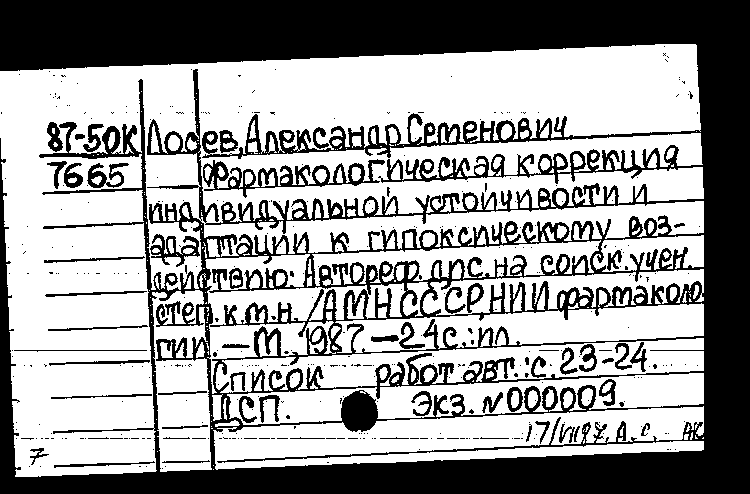 87-50К Лосев, Александр Семенович
7665 Фармакологическая коррекция
индивидуальной устойчивости и
адаптации к гипоксическому воз-
действию: Автореф. дис. на соиск. учен.
степ. к.м.н. /АМН СССР, НИИ фармаколо-
гии. — М., 1987. — 24с.: ил.
Список работ авт.: с. 23-24.
ДСП. Экз. №000009.
17/VII87. А.С.
7